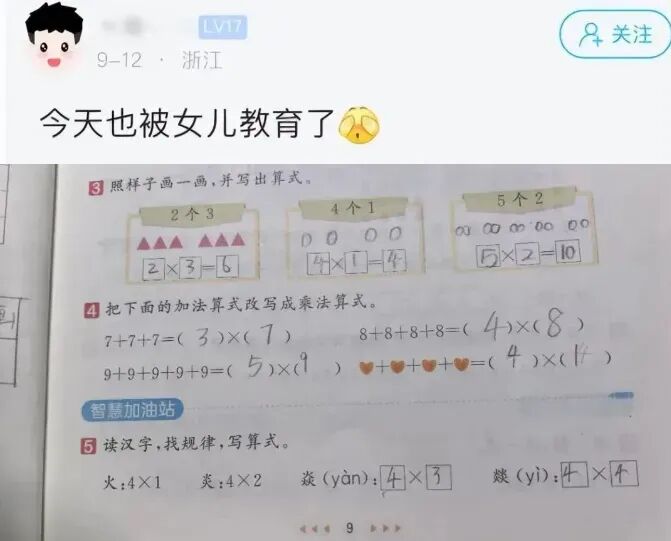 LV17
9-12 · 浙江
关注
今天也被女儿教育了
3 照样子画一画,并写出算式。
2个3 4个1 5个2
2×3=6 4×1=4 5×2=10
4 把下面的加法算式改写成乘法算式。
7+7+7=( 3 )×( 7 ) 8+8+8+8=( 4 )×( 8 )
9+9+9+9+9=( 5 )×( 9 ) + + + =( 4 )×( )
智慧加油站
5 读汉字,找规律,写算式。
火:4×1 炎:4×2 焱(yàn):4×3 燚(yì):4×4
9